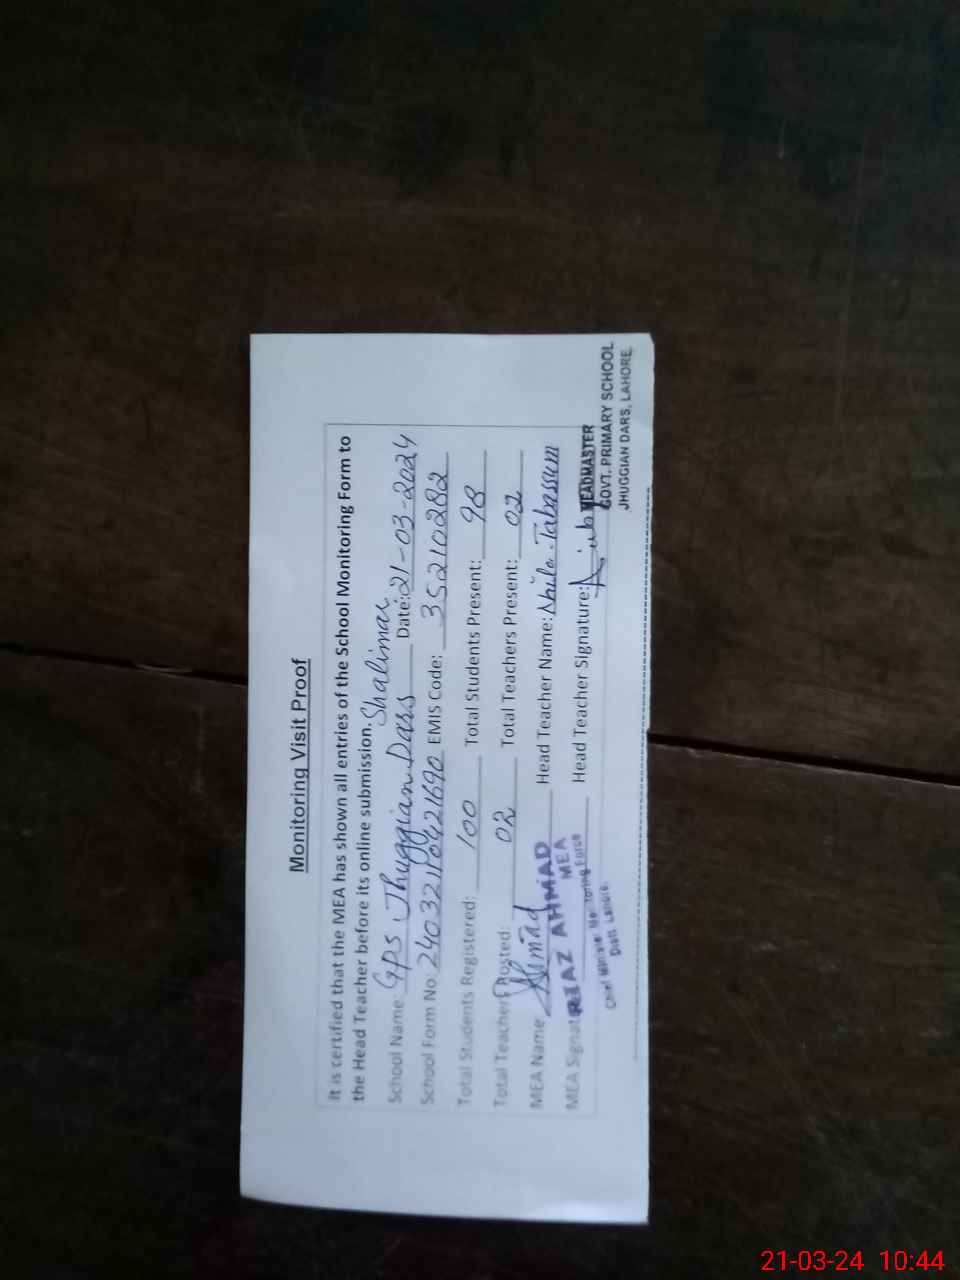 Monitoring Visit Proof
It is certified that the MEA has shown all entries of the School Monitoring Form to
the Head Teacher before its online submission.
School Name: GPS Jhuggian Dars Shalimar Date: 21-03-2024
School Form No: 24032110421690 EMIS Code: 35210282
Total Students Registered: 100 Total Students Present: 98
Total Teachers Posted: 02 Total Teachers Present: 02
MEA Name Ahmad Head Teacher Name: Naila Tabassum
MEA Signature Head Teacher Signature:
AHMAD
MEA
Chief Minister Monitoring Force
Distt Lahore.
HEADMASTER
GOVT. PRIMARY SCHOOL
JHUGGIAN DARS, LAHORE.
21-03-24 10:44